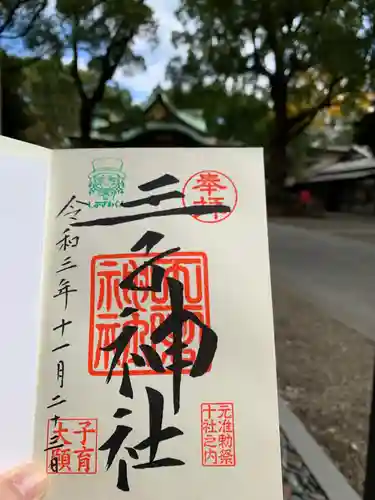 奉拝
王子神社
王子神社
元准勅祭
十社之内
令和三年十一月二十三日
子育
大願